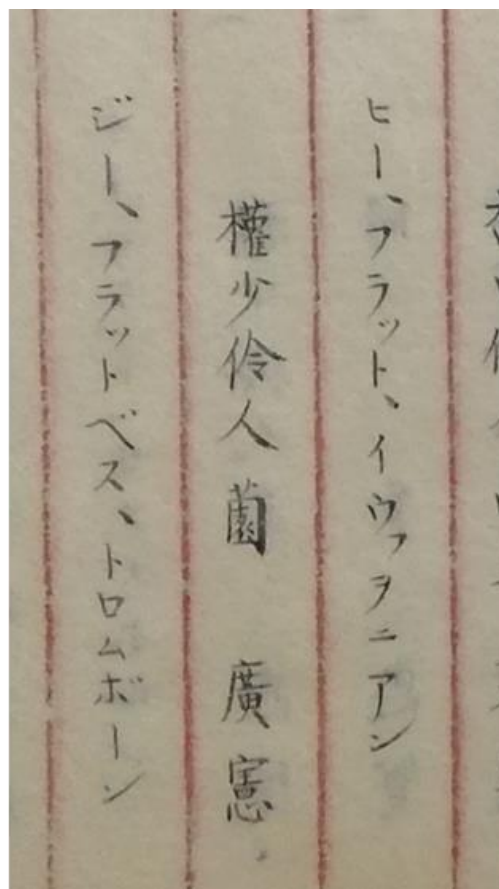 ヒー、フラット、イウフヲニアン
權少伶人 薗 廣憲
ジー、フラットベス、トロムボーン